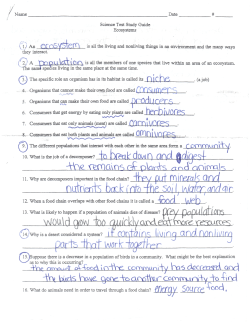 Name Date #
Science Test Study Guide
Ecosystems
1. An ecosystem is all the living and nonliving things in an environment and the many ways
they interact.
2. A population is all the members of one species that live within an area of an ecosystem.
The same species living in the same place at the same time.
3. The specific role an organism has in its habitat is called its niche (a job)
4. Organisms that cannot make their own food are called consumers
5. Organisms that can make their own food are called producers
6. Organisms that get energy by eating only plants are called herbivores
7. Organisms that eat only animals (meat) are called carnivores
8. Organisms that eat both plants and animals are called omnivores
9. The different populations that interact with each other in the same area form a community
10. What is the job of a decomposer? to break down and digest
the remains of plants and animals
11. Why are decomposers important in the food chain? they put minerals and
nutrients back into the soil, water, and air
12. When a food chain overlaps with other food chains it is called a food web
13. What is likely to happen if a population of animals dies of disease? prey populations
would grow too quickly and eat more resources
14. Why is a desert considered a system? it contains living and nonliving
parts that work together
15. Suppose there is a decrease in a population of birds in a community. What might be the best explanation
as to why this is occurring?
The amount of food in the community has decreased and
the birds have gone to another community to find
food.
16. What do animals need in order to travel through a food chain? energy source